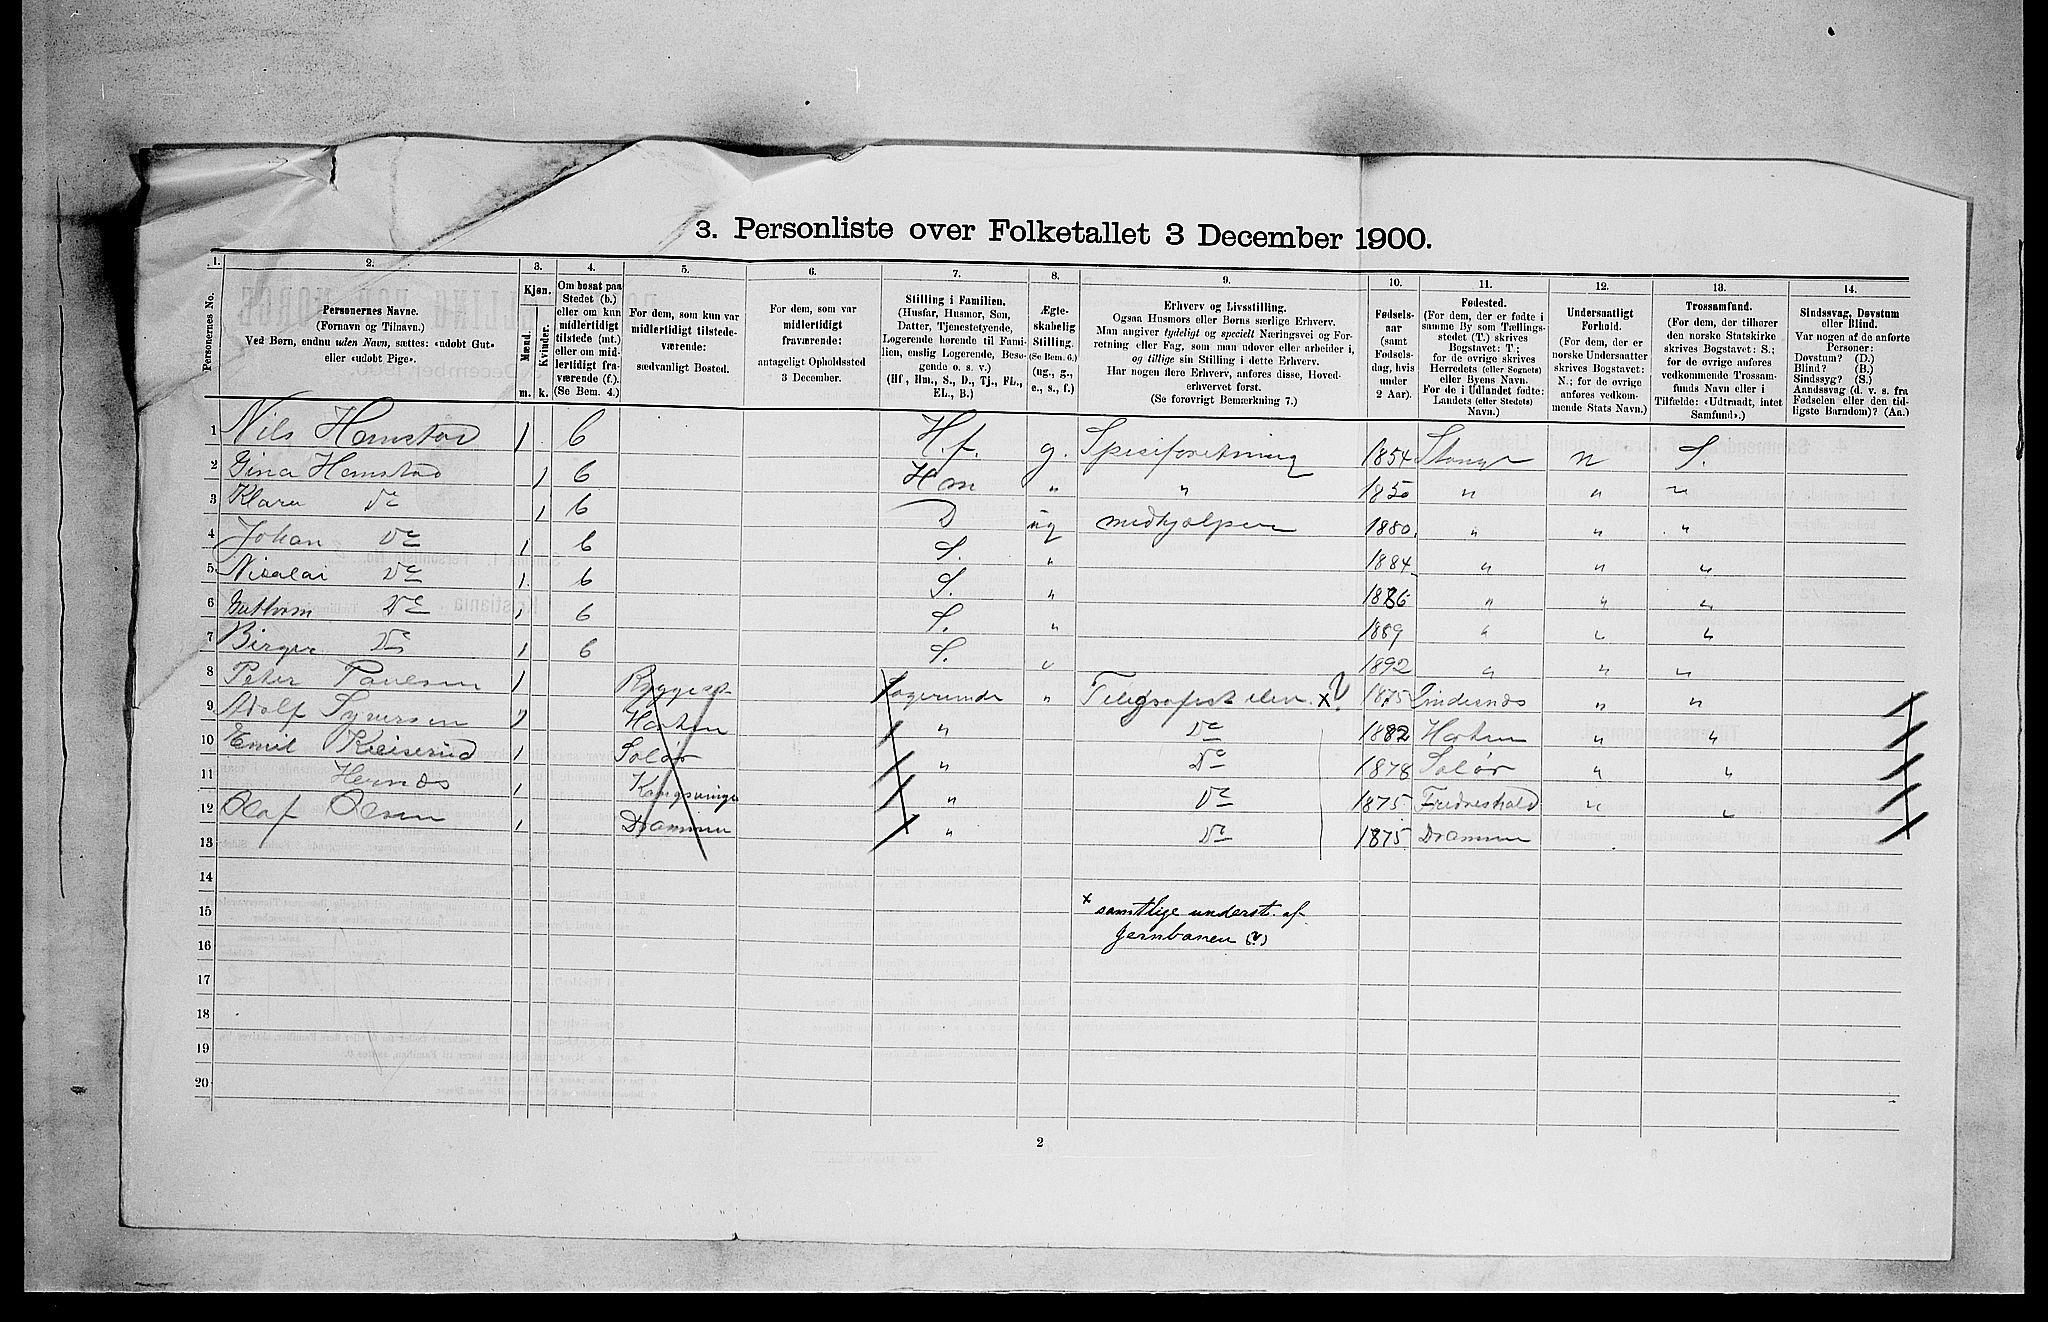 3. Personliste over Folketallet 3 December 1900.
1. 2. 3. 4. 5. 6. 7. 8. 9. 10. 11. 12. 13. 14.
Personernes No.
Personernes Navne.
(Fornavn og Tilnavn.)
Ved Børn, endnu uden Navn, sættes: «udøbt Gut»
eller «udøbt Pige».
Kjøn.
Mænd.
Kvinder.
m. k.
Om bosat paa
Stedet (b.)
eller om kun
midlertidigt
tilstede (mt.)
eller om mid-
lertidigt fra-
værende (f.).
(Se Bem. 4.)
For dem, som kun var
midlertidigt tilstede-
værende:
sædvanligt Bosted.
For dem, som var
midlertidigt
fraværende:
antageligt Opholdssted
3 December.
Stilling i Familien.
(Husfar, Husmor, Søn,
Datter, Tjenestetyende,
Logerende hørende til Fami-
lien, enslig Logerende, Besø-
gende o. s. v.)
(Hf, Hm., S., D., Tj., FL.,
EL., B.)
Ægte-
skabelig
Stilling.
(Se Bem. 6.)
(ug., g.,
e., s., f.)
Erhverv og Livsstilling.
Ogsaa Husmors eller Børns særlige Erhverv.
Man angiver tydeligt og specielt Næringsvei og For-
retning eller Fag, som man udøver eller arbeider i,
og tillige sin Stilling i dette Erhverv.
Har nogen flere Erhverv, anføres disse, Hoved-
erhvervet først.
(Se forøvrigt Bemærkning 7.)
Fødsels-
aar
(samt
Fødsels-
dag, hvis
under
2 Aar).
Fødested.
(For dem, der er fødte i
samme By som Tællings-
stedet (T.) skrives
Bogstavet: T;
for de øvrige skrives
Herredets (eller Sognets)
eller Byens Navn.
For de i Udlandet fødte:
Landets (eller Stedets)
Navn.)
Undersaatligt
Forhold.
(For dem, der er
norske Undersaatter
skrives Bogstavet:
N.; for de øvrige
anføres vedkom-
mende Stats Navn.)
Trossamfund.
(For dem, der tilhører
den norske Statskirke
skrives Bogstavet: S.;
for de øvrige anføres
vedkommende Trossam-
funds Navn eller i
Tilfælde: «Udtraadt, intet
Samfund».)
Sindssvag, Døvstum
eller Blind.
Var nogen af de anførte
Personer:
Døvstum? (D.)
Blind? (B.)
Sindssyg? (S.)
Aandssvag (d. v. s. fra
Fødselen eller den tid-
ligste Barndom)? (Aa.)
1 Nils Hemstad 1 b H.f. g. Spiseforretning 1854 Stange n S.
2 Gina Hemstad 1 b Hm " " 1850 " " "
3 Klara Do 1 b D ug medhjælper 1880 " " "
4 Johan Do 1 b S. " 1884 " " "
5 Nicolai Do 1 b S. " 1886 " " "
6 Guttorm Do 1 b S. " 1889 " " "
7 Birger Do 1 b S. " 1892 " " "
8 Peter Paulsen 1 Logerende " Telegrafist elev. x? 1875 Lindesnæs " "
9 Adolf Syversen 1 Horten " Do 1882 Horten " "
10 Emil 1 Solør " Do 1878 Solør " "
11 Hernæs 1 Kongsvinger " Do 1875 Fredrikshald " "
12 Olaf Olsen 1 Drammen " Do 1875 Drammen
13
14
15 x samtlige underst. af
16 Jernbanen (?)
17
18
19
20
2